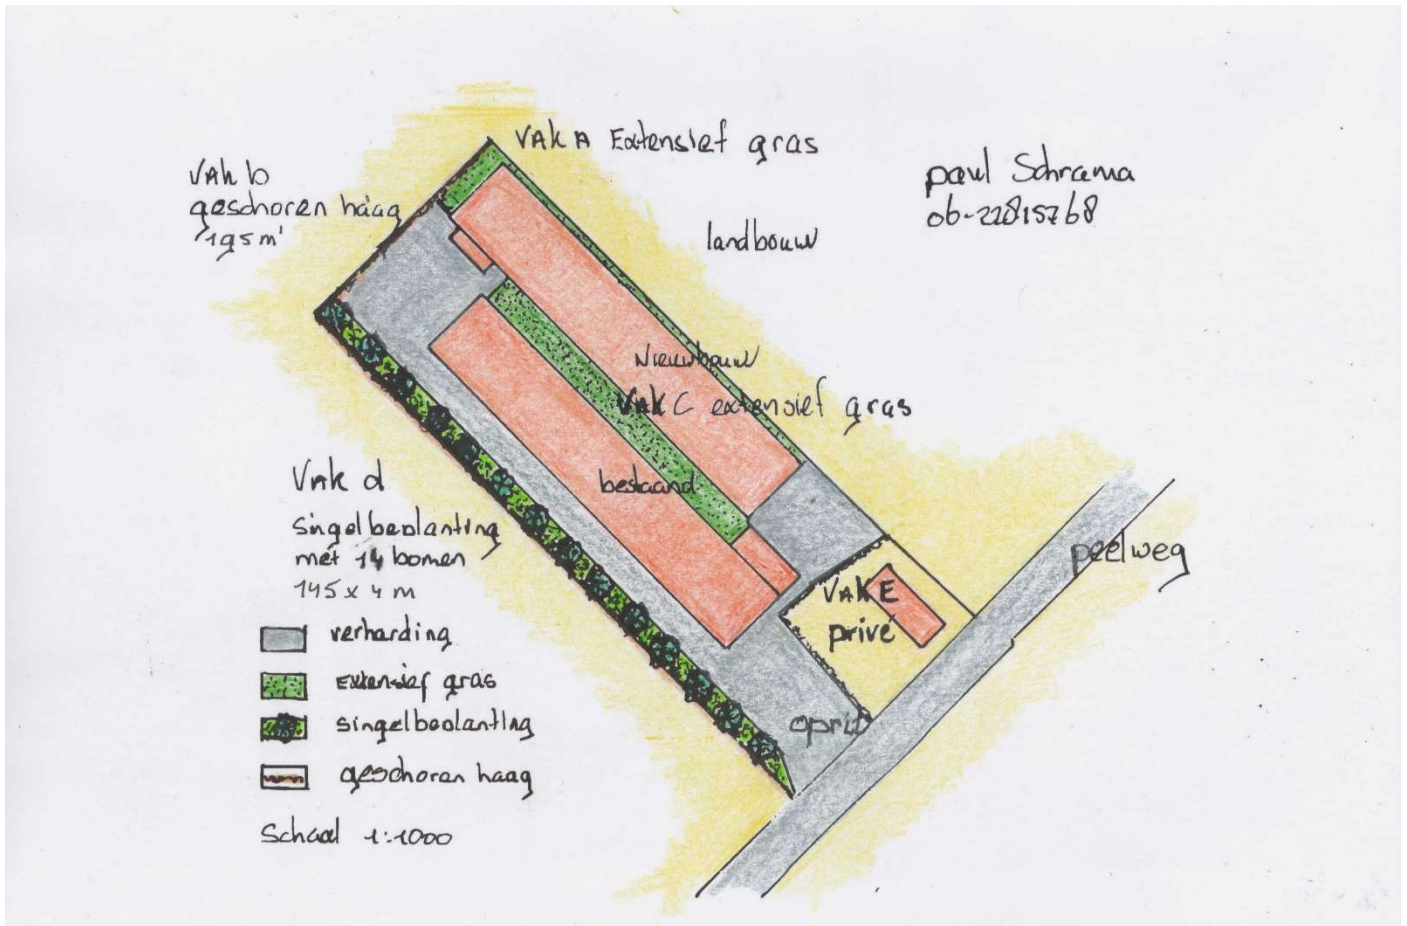 VAK A Extensief gras
Vak b
geschoren haag
195 m'
paul Schrama
06-22815768
landbouw
Nieuwbouw
VAK C extensief gras
bestaand
Vak d
singelbeplanting
met 14 bomen
145 x 4 m
peelweg
VAK E
privé
oprit
verharding
Extensief gras
singelbeplanting
geschoren haag
Schaal 1:1000